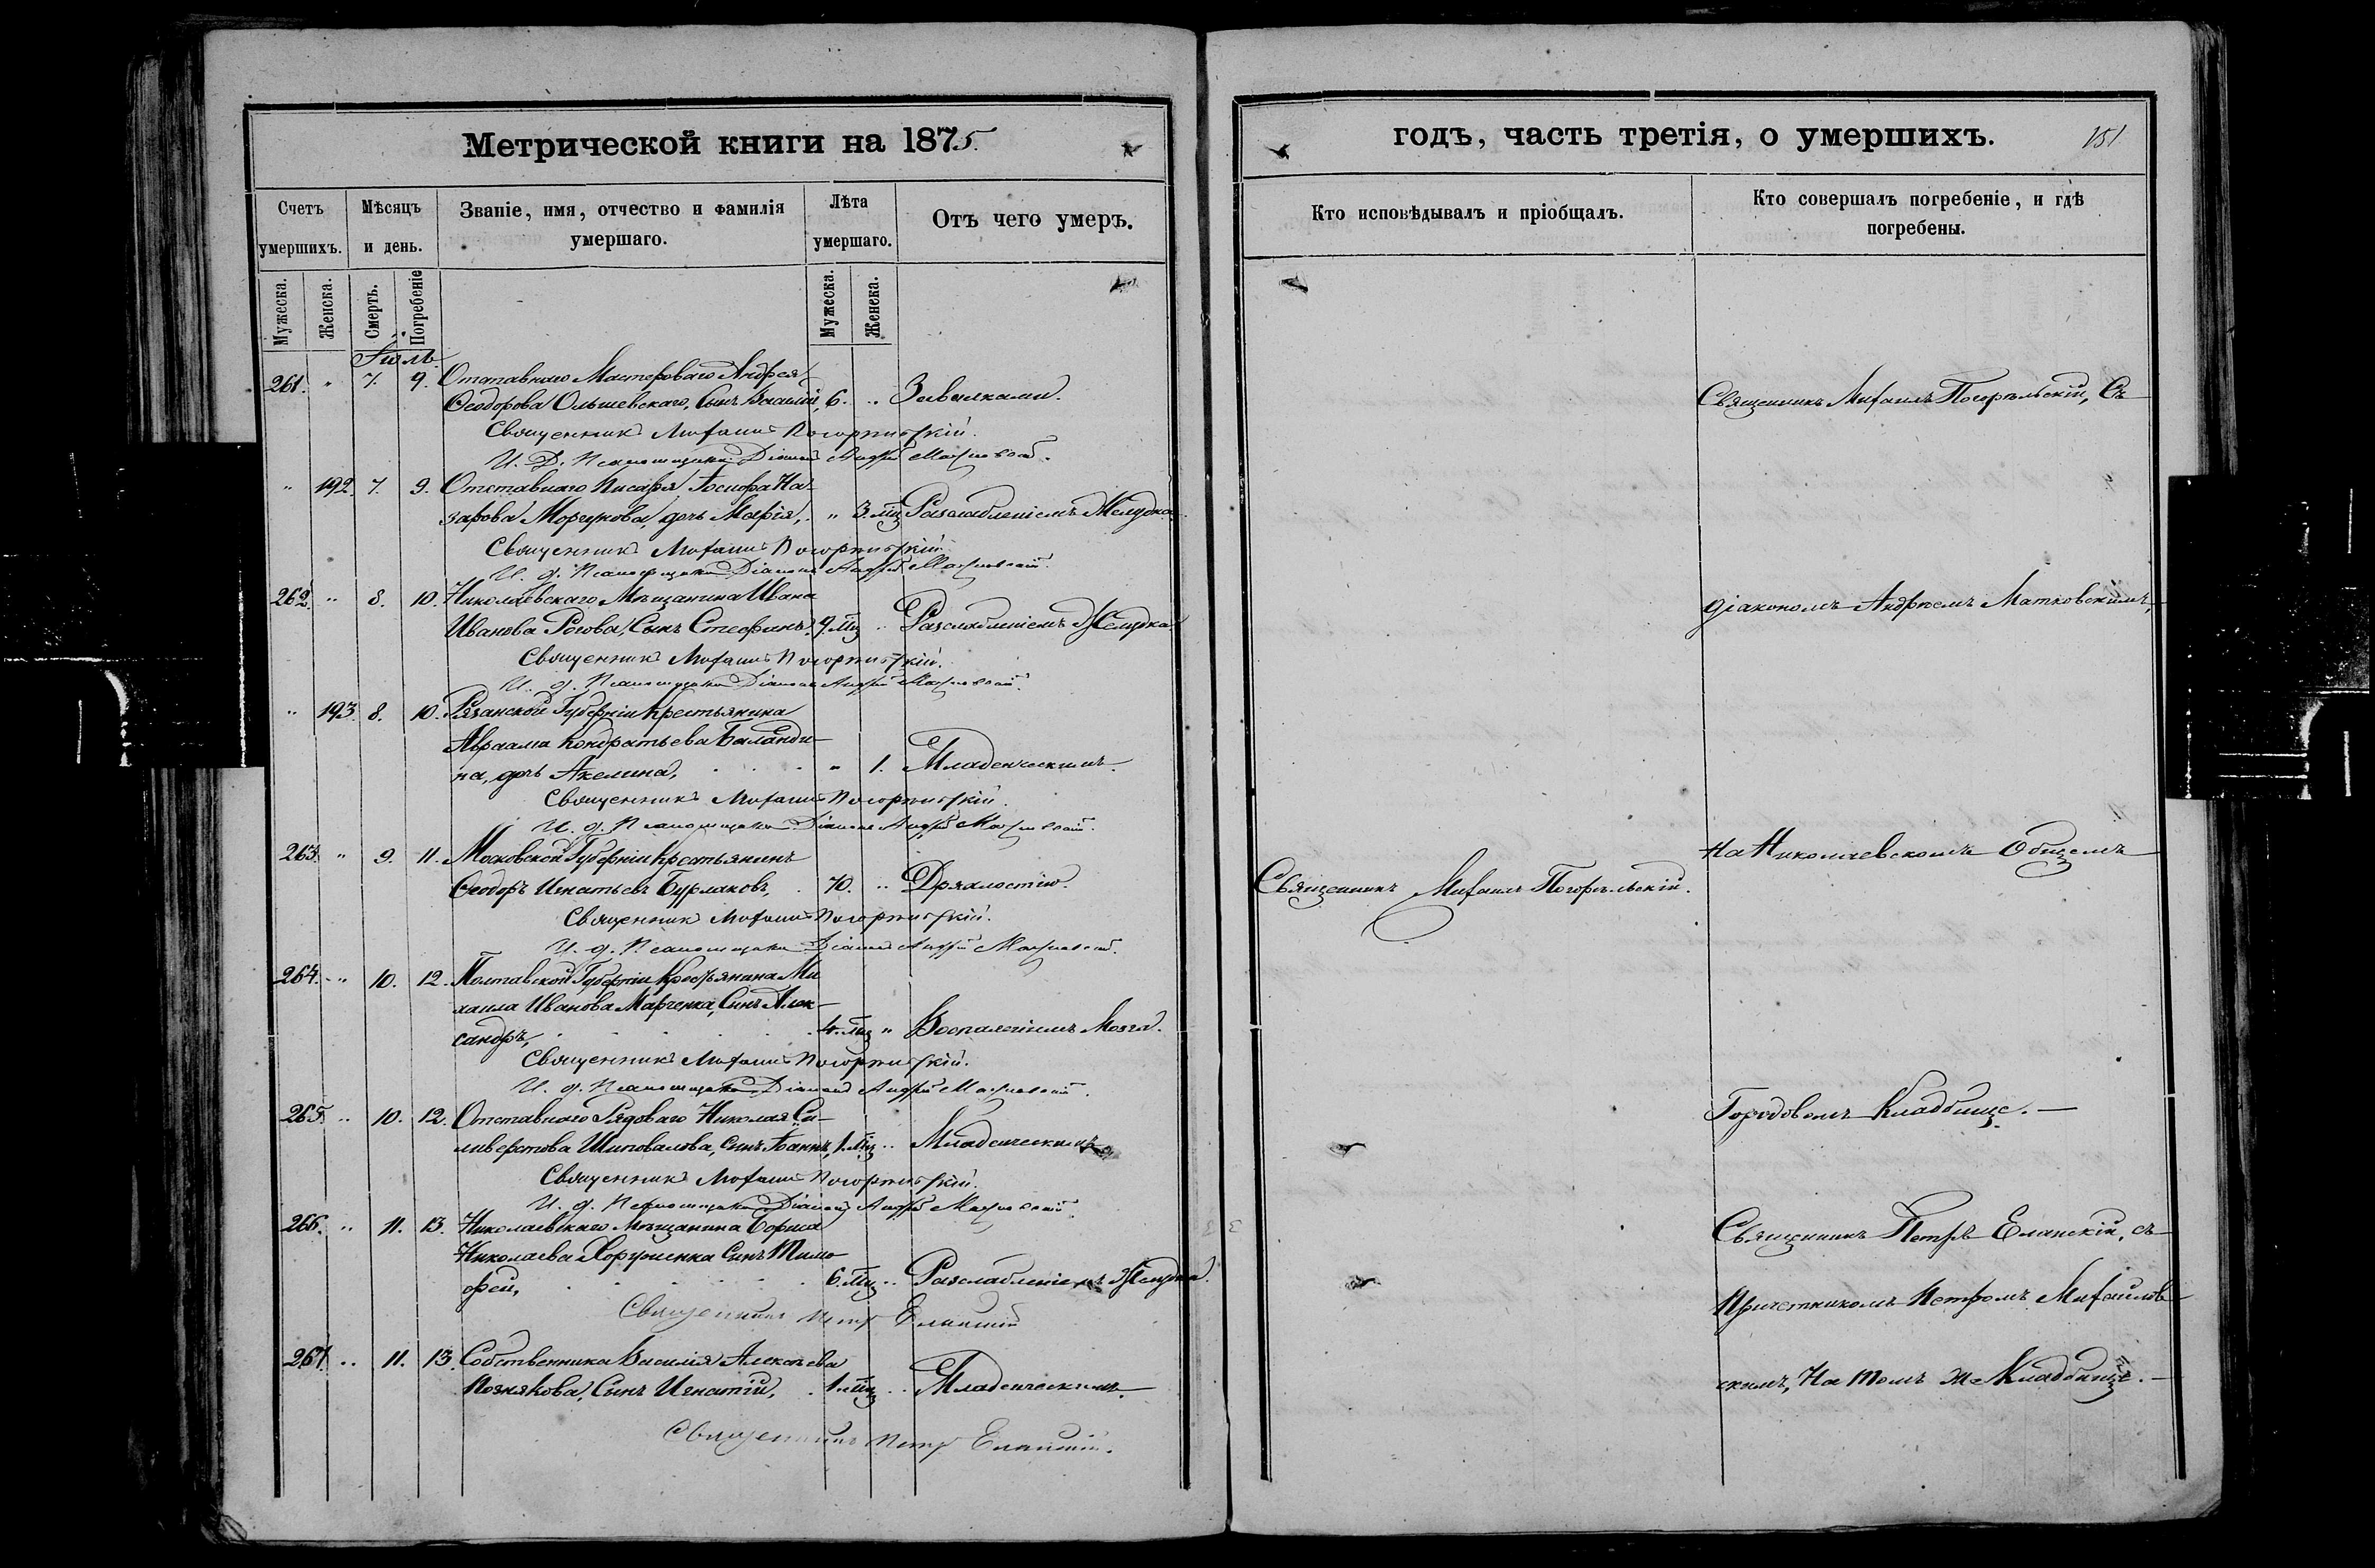 Метрической книги на 1875
Счетъ умершихъ.
Мѣсяцъ и день.
Званіе, имя, отчество и фамилія умершаго.
Лѣта умершаго.
Отъ чего умеръ.
Мужеска. Женска. Смерть. Погребеніе Мужеска. Женска.
Іюль
261. " 7. 9. Отставнаго Мастероваго Андрея
Ѳеодорова Ольшевскаго, Сынъ 6. "
Священникъ Михаилъ Погорѣльскій.
И. Д. Псаломщика Діаконъ Андрей Матковскій.
" 192. 7. 9. Отставнаго Писаря Іосифа На-
зарова Моргунова, дочь Марія, " 3. мц Разслабленіемъ Желудка.
Священникъ Михаилъ Погорѣльскій.
И. д. Псаломщика Діаконъ Андрей Матковскій.
262. " 8. 10. Николаевскаго Мѣщанина Ивана
Иванова Рогова, Сынъ Стефанъ, 9. мц " Разслабленіемъ Желудка.
Священникъ Михаилъ Погорѣльскій.
И. д. Псаломщика Діаконъ Андрей Матковскій.
" 193. 8. 10. Рязанской Губерніи Крестьянина
Авраама Кондратьева Баланди-
на, дочь Акелина, " 1. Младенческимъ.
Священникъ Михаилъ Погорѣльскій.
И. д. Псаломщика Діаконъ Андрей Матковскій.
263. " 9. 11. Московской Губерніи Крестьянинъ
Ѳеодоръ Игнатьевъ Бурлаковъ, 70. " Дряхлостію.
Священникъ Михаилъ Погорѣльскій.
И. д. Псаломщика Діаконъ Андрей Матковскій.
264. " 10. 12. Полтавской Губерніи Крестьянина Ми
хаила Иванова Марченка, Сынъ Алек-
сандръ, 4. мц " Воспаленіемъ Мозга.
Священникъ Михаилъ Погорѣльскій.
И. д. Псаломщика Діаконъ Андрей Матковскій.
265. " 10. 12. Отставнаго Рядоваго Николая Си-
ливерстова Шаповалова, сынъ Іоаннъ, 1. мц " Младенческимъ
Священникъ Михаилъ Погорѣльскій.
И. д. Псаломщика Діаконъ Андрей Матковскій.
266. " 11. 13. Николаевскаго Мѣщанина Бориса
Николаева Сынъ Тимо-
фей, 6. мц " Разслабленіемъ Желудка.
Священникъ Петръ Еланскій
267. " 11. 13. Собственника Василія Алексѣева
Познякова, Сынъ Игнатій, 1. мц " Младенческимъ.
Священникъ Петръ Еланскій.
годъ, часть третія, о умершихъ.
151
Кто исповѣдывалъ и пріобщалъ.
Кто совершалъ погребеніе, и гдѣ погребены.
Священникъ Михаилъ Погорѣльскій, Съ
діакономъ Андреемъ Матковскимъ,
На Николаевскомъ Общемъ
Священникъ Михаилъ Погорѣльскій.
Городовомъ Кладбище. —
Священникъ Петръ Еланскій, съ
Причетникомъ Петромъ Михайлов
скимъ, На томъ же Кладбище. —